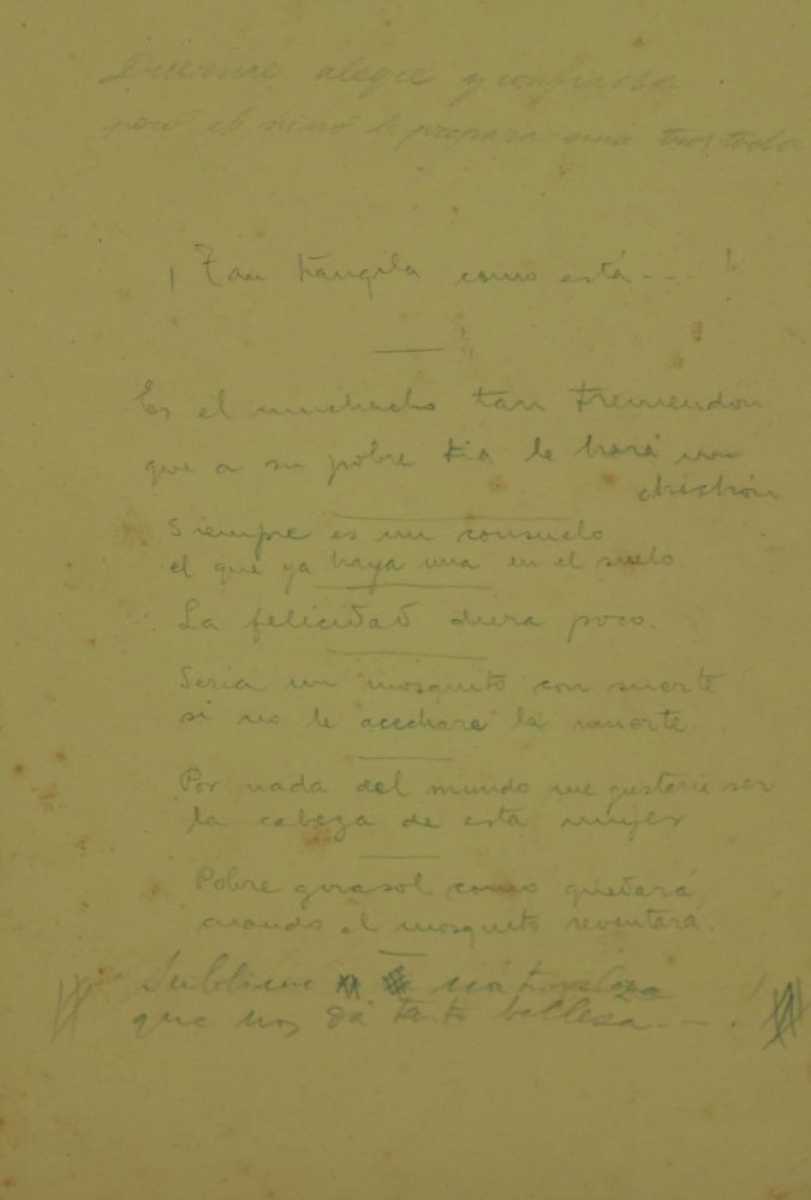 Duerme alegre y confiada
pero el niño le prepara una
¡ Tan tranqila como está---- !
Es el muchacho tan tremendon
que a su pobre tia le hará un
chichón
Siempre es un consuelo
el que ya haya una en el suelo
La felicidad dura poco.
Seria un mosquito con suerte
si no le acechara la muerte
Por nada del mundo me gustaria ser
la cabeza de esta mujer
Pobre girasol como quedará
cuando el mosquito reventara.
Sublime naturaleza
que nos da tanta belleza---.